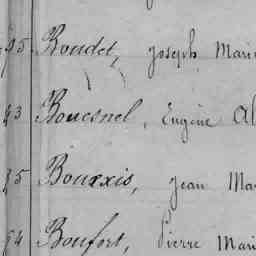 95 Boudet, Joseph Marie
43 Bouesnel, Eugène Al
85 Bourxis, Jean Ma
74 Boufort, Pierre Mari